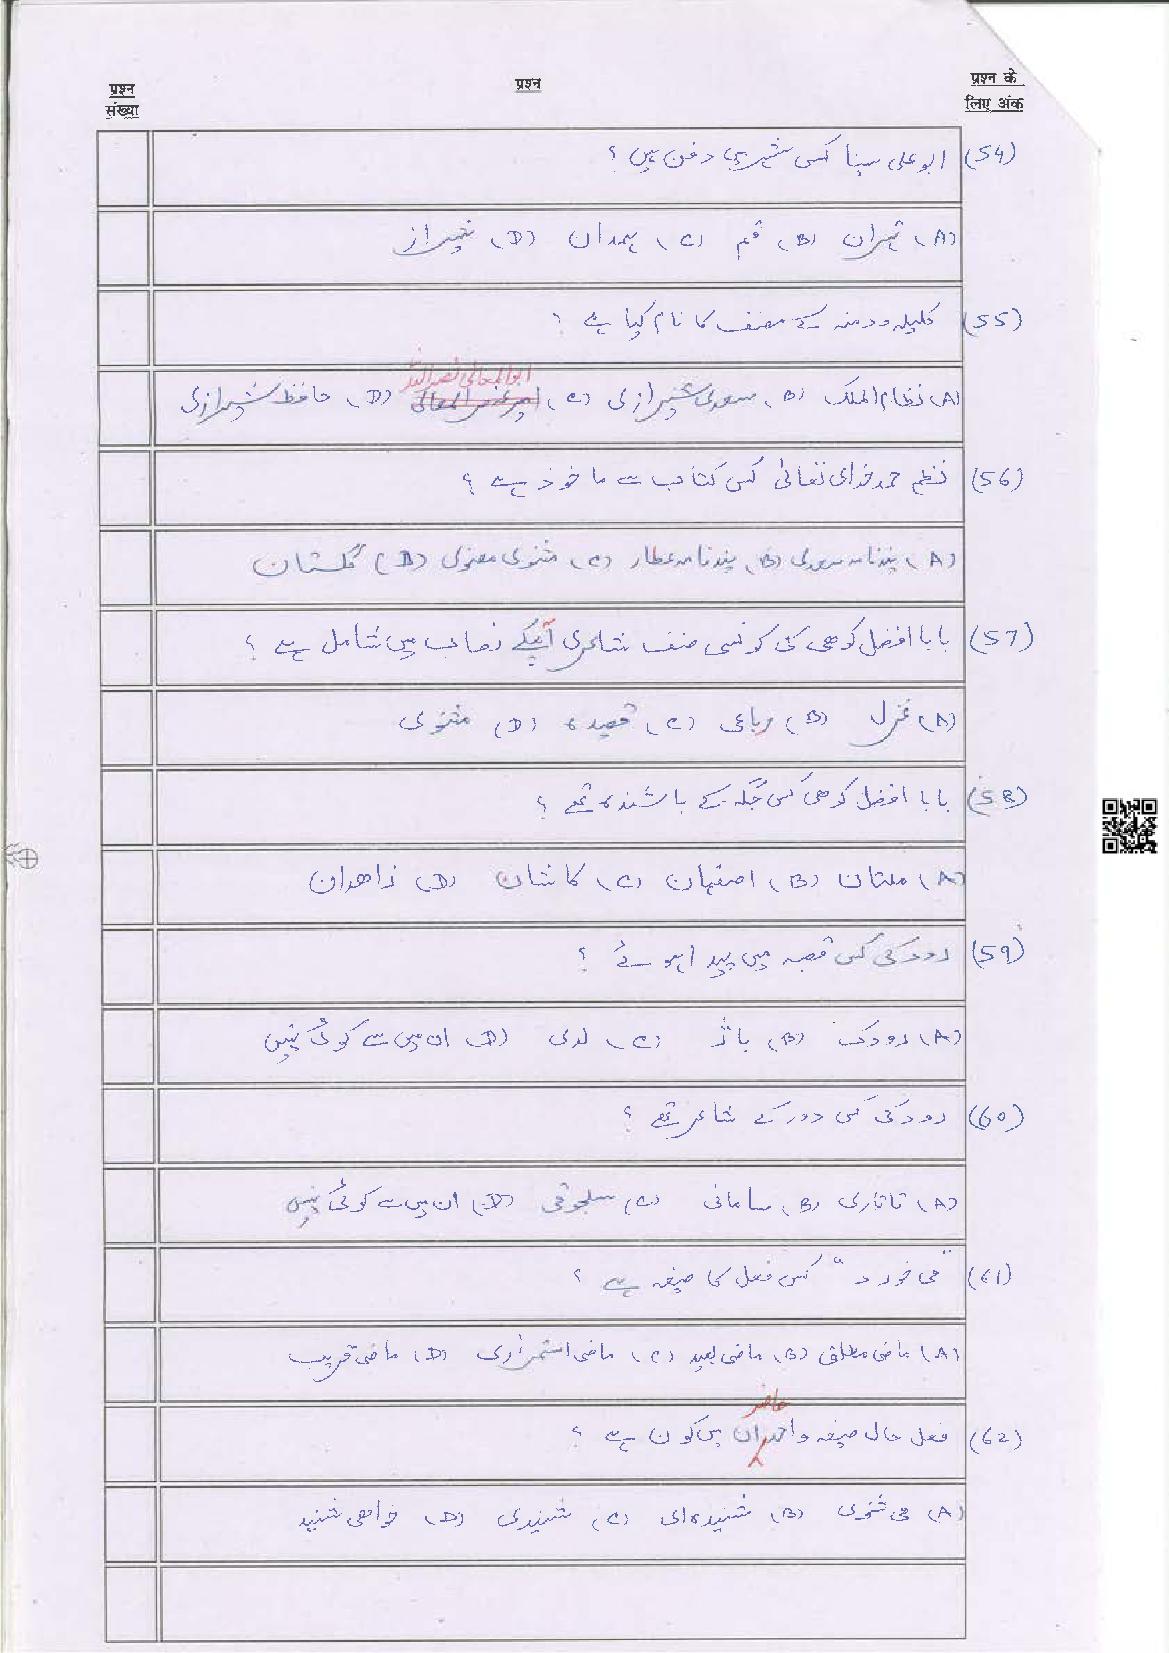 प्रश्न संख्या
प्रश्न
प्रश्न के लिए अंक
(54) ابوعلی سینا کس شہر میں دفن ہیں ؟
(A) تہران (B) قم (C) ہمدان (D) شیراز
(55) کلیلہ و دمنہ کے مصنف کا نام کیا ہے ؟
ابوالمعالی نصراللہ
(A) نظام الملک (B) سعدی شیرازی (C) (D) حافظ شیرازی
(56) نظم حمد خدای تعالیٰ کس کتاب سے ماخوذ ہے ؟
(A) پندنامہ سعدی (B) پندنامہ عطار (C) مثنوی معنوی (D) گلستان
(57) بابا افضل کوهی کی کونسی صنف شاعری آپکے نصاب میں شامل ہے ؟
(A) غزل (B) رباعی (C) قصیدہ (D) مثنوی
(58) بابا افضل کوهی کس جگہ کے باشندہ تھے ؟
(A) ملتان (B) اصفہان (C) کاشان (D) زاهدان
(59) رودکی کس قصبہ میں پیدا ہوئے ؟
(A) رودک (B) باژ (C) لدی (D) ان میں سے کوئی نہیں
(60) رودکی کس دور کے شاعر تھے ؟
(A) تاتاری (B) سامانی (C) سلجوقی (D) ان میں سے کوئی نہیں
(61) "می خورد" کس فعل کا صیغہ ہے ؟
(A) ماضی مطلق (B) ماضی بعید (C) ماضی استمراری (D) ماضی قریب
حاضر
(62) فعل حال صیغہ واحد ان میں کون ہے ؟
(A) می شنوی (B) شنیدہ ای (C) شنیدی (D) خواهی شنید